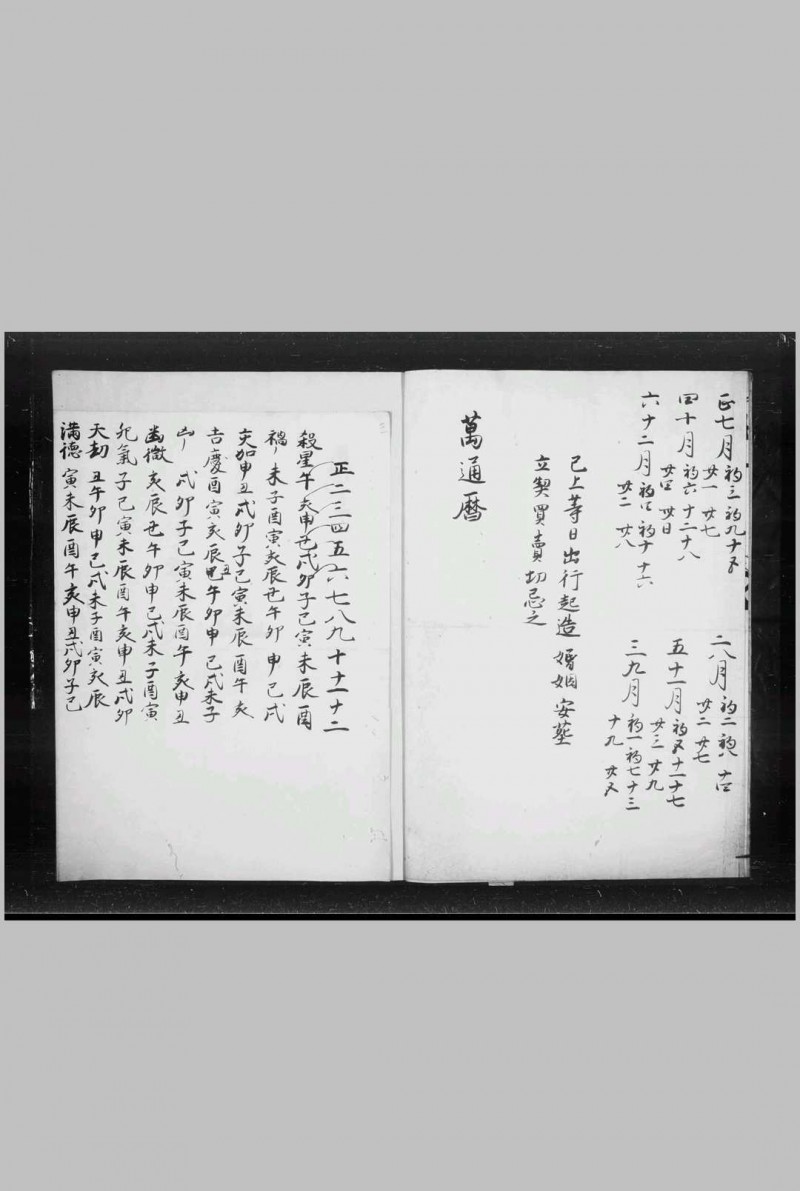 正七月 初三 初九 十五
廿一 廿七
二八月 初二 初八 十四
廿二 廿七
四十月 初六 十二 十八
廿四 卅日
五十一月 初五 十一 十七
廿三 廿九
六十二月 初四 初十 十六
廿二 廿八
三九月 初一 初七 十三
十九 廿五
已上等日出行起造婚姻安葬
立契買賣切忌之
萬通曆
正二三四五六七八九十十一十二
殺星午亥申丑戌卯子巳寅未辰酉
禍ヽ未子酉寅亥辰丑午卯申巳戌
交加申丑戌卯子巳寅未辰酉午亥
吉慶酉寅亥辰丑午卯申巳戌未子
凶ヽ戌卯子巳寅未辰酉午亥申丑
幽微亥辰丑午卯申巳戌未子酉寅
死氣子巳寅未辰酉午亥申丑戌卯
天劫丑午卯申巳戌未子酉寅亥辰
滿德寅未辰酉午亥申丑戌卯子巳